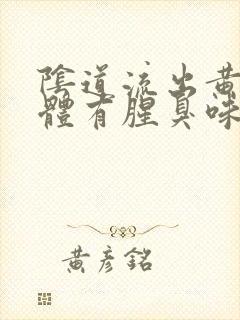 陰道流出黃
體有腥臭味
黃彥銘